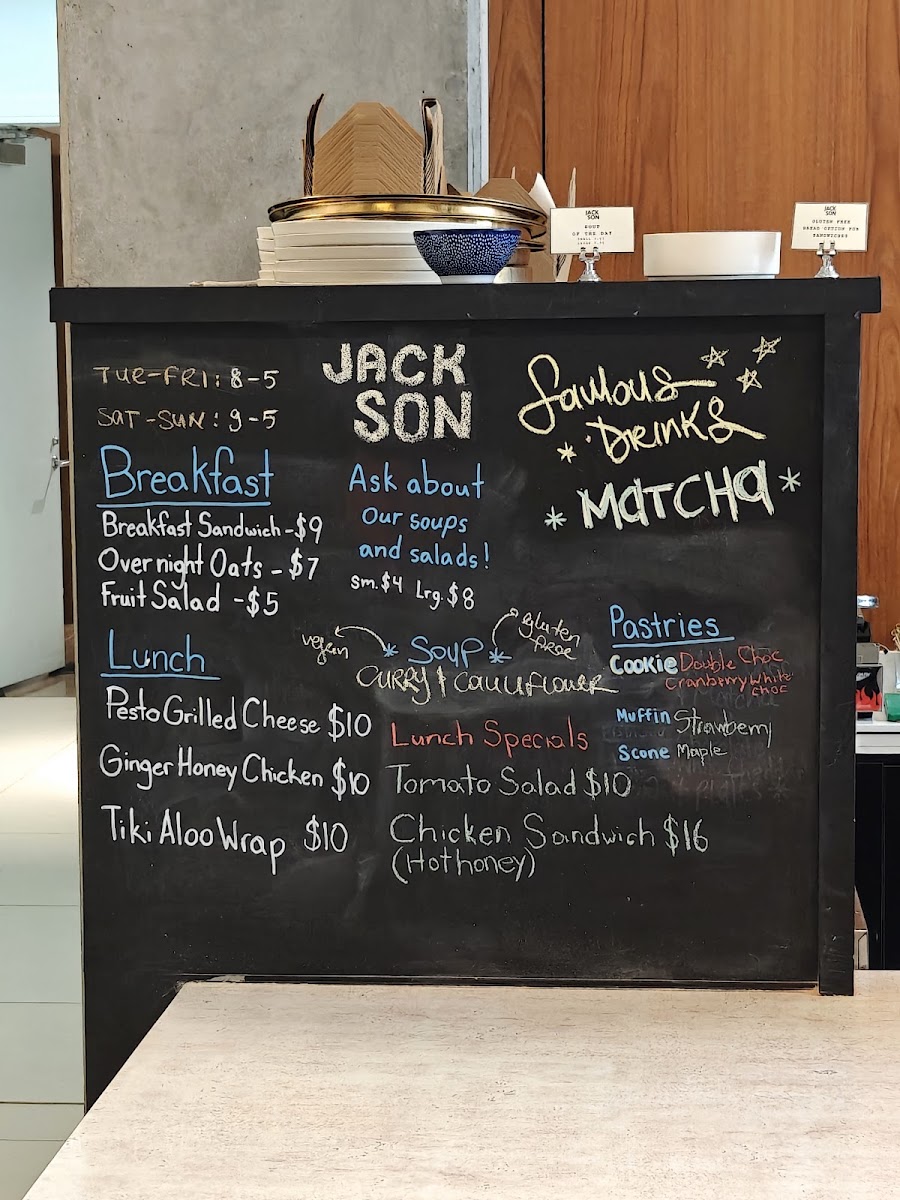 JACK
SON
SOUP
OF THE DAY
JACK
SON
GLUTEN FREE
BREAD OPTION FOR
SANDWICHES
TUE-FRI: 8-5
SAT-SUN: 9-5
JACK
SON
Famous
DRINKS
MATCHA
Breakfast
Breakfast Sandwich - $9
Overnight Oats - $7
Fruit Salad - $5
Ask about
our soups
and salads!
sm. $4 Lrg. $8
Lunch
Pesto Grilled Cheese $10
Ginger Honey Chicken $10
Tiki Aloo Wrap $10
vegan
gluten
free
SOUP
CURRY & CAULIFLOWER
Lunch Specials
Tomato Salad $10
Chicken Sandwich $16
(Hot honey)
Pastries
Cookie Double Choc
Cranberry White
choc
Muffin Strawberry
Scone Maple